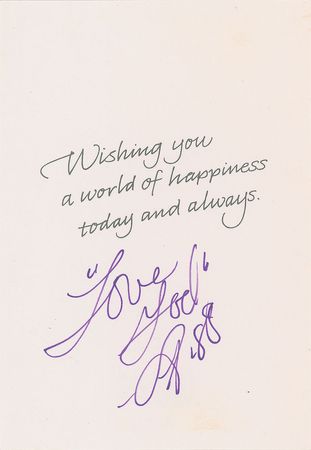 Wishing you
a world of happiness
today and always.
"Love
God"
'88